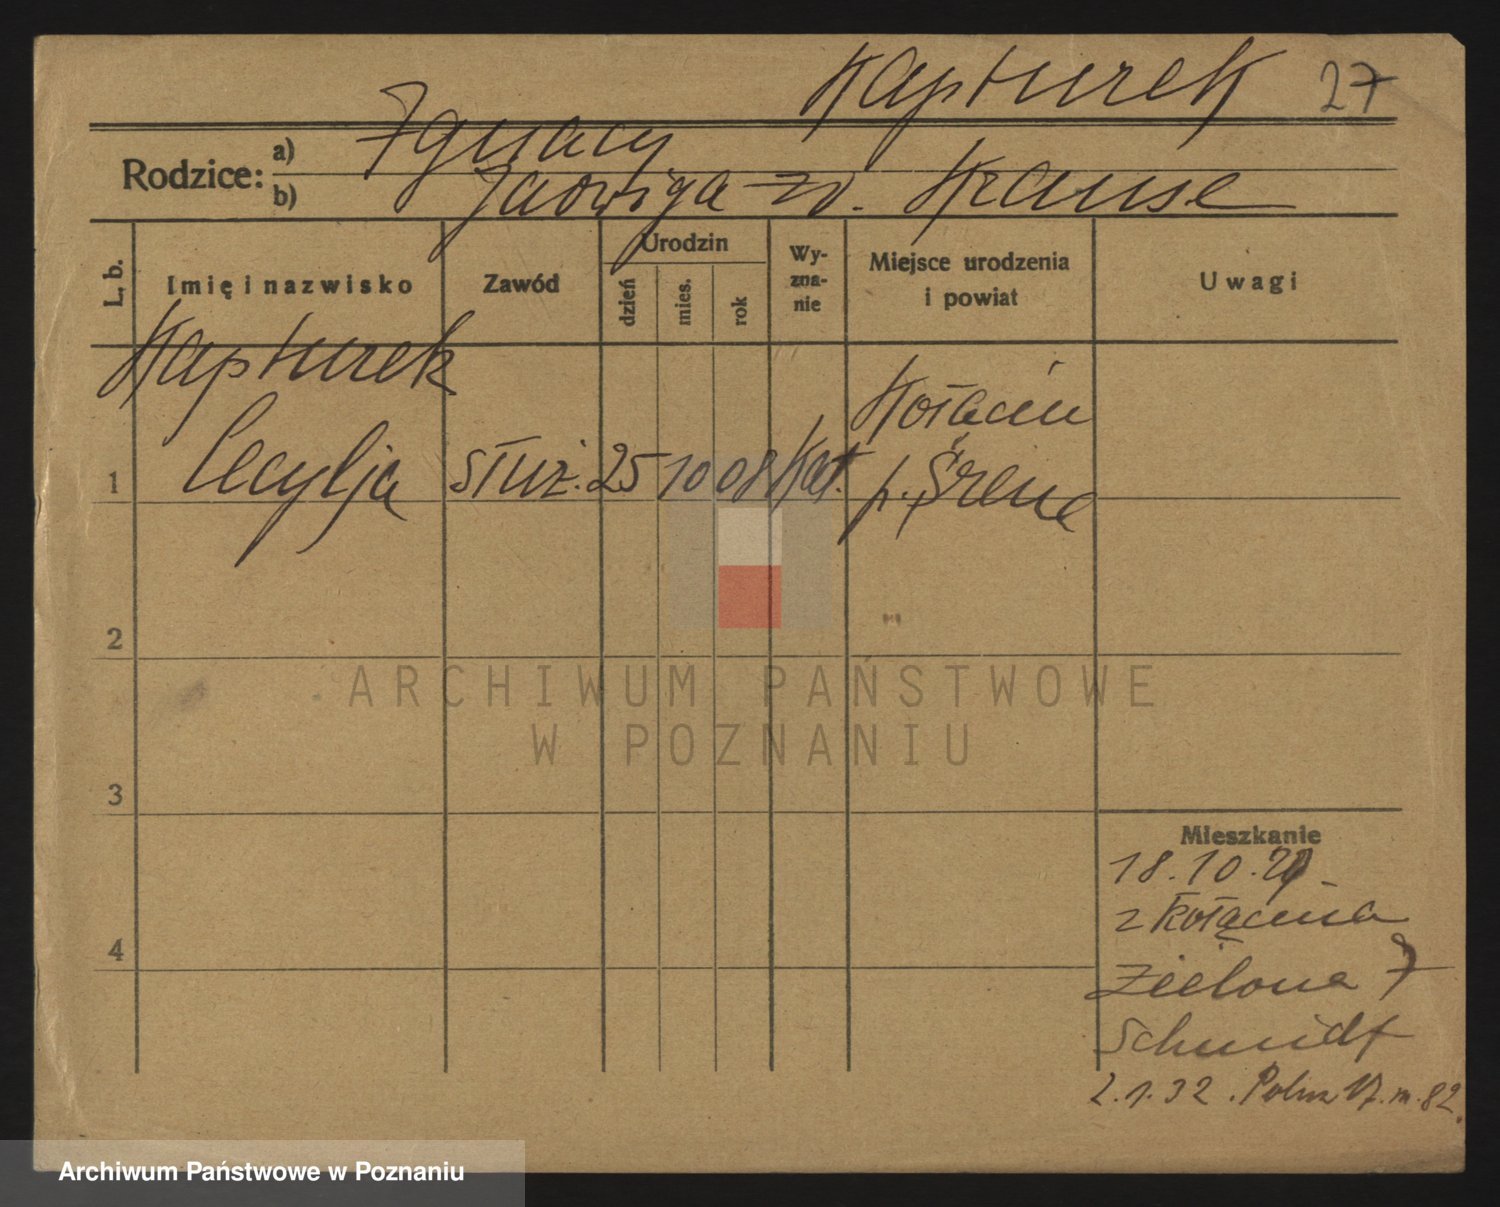 Kapturek 27
Rodzice: a) Ignacy
b) Jadwiga zd. Krause
L. b.
Imię i nazwisko
Zawód
Urodzin
dzień
mies.
rok
Wy-
zna-
nie
Miejsce urodzenia
i powiat
Uwagi
Kapturek
1 Cecylja służ. 25 10 08 kat.
Kołacin
p. Śrem
2
3
4
ARCHIWUM PAŃSTWOWE
W POZNANIU
Mieszkanie
18.10.
z Kołacina
Zielona 7
Schmidt
2.1.32. 17. m. 82.
Archiwum Państwowe w Poznaniu